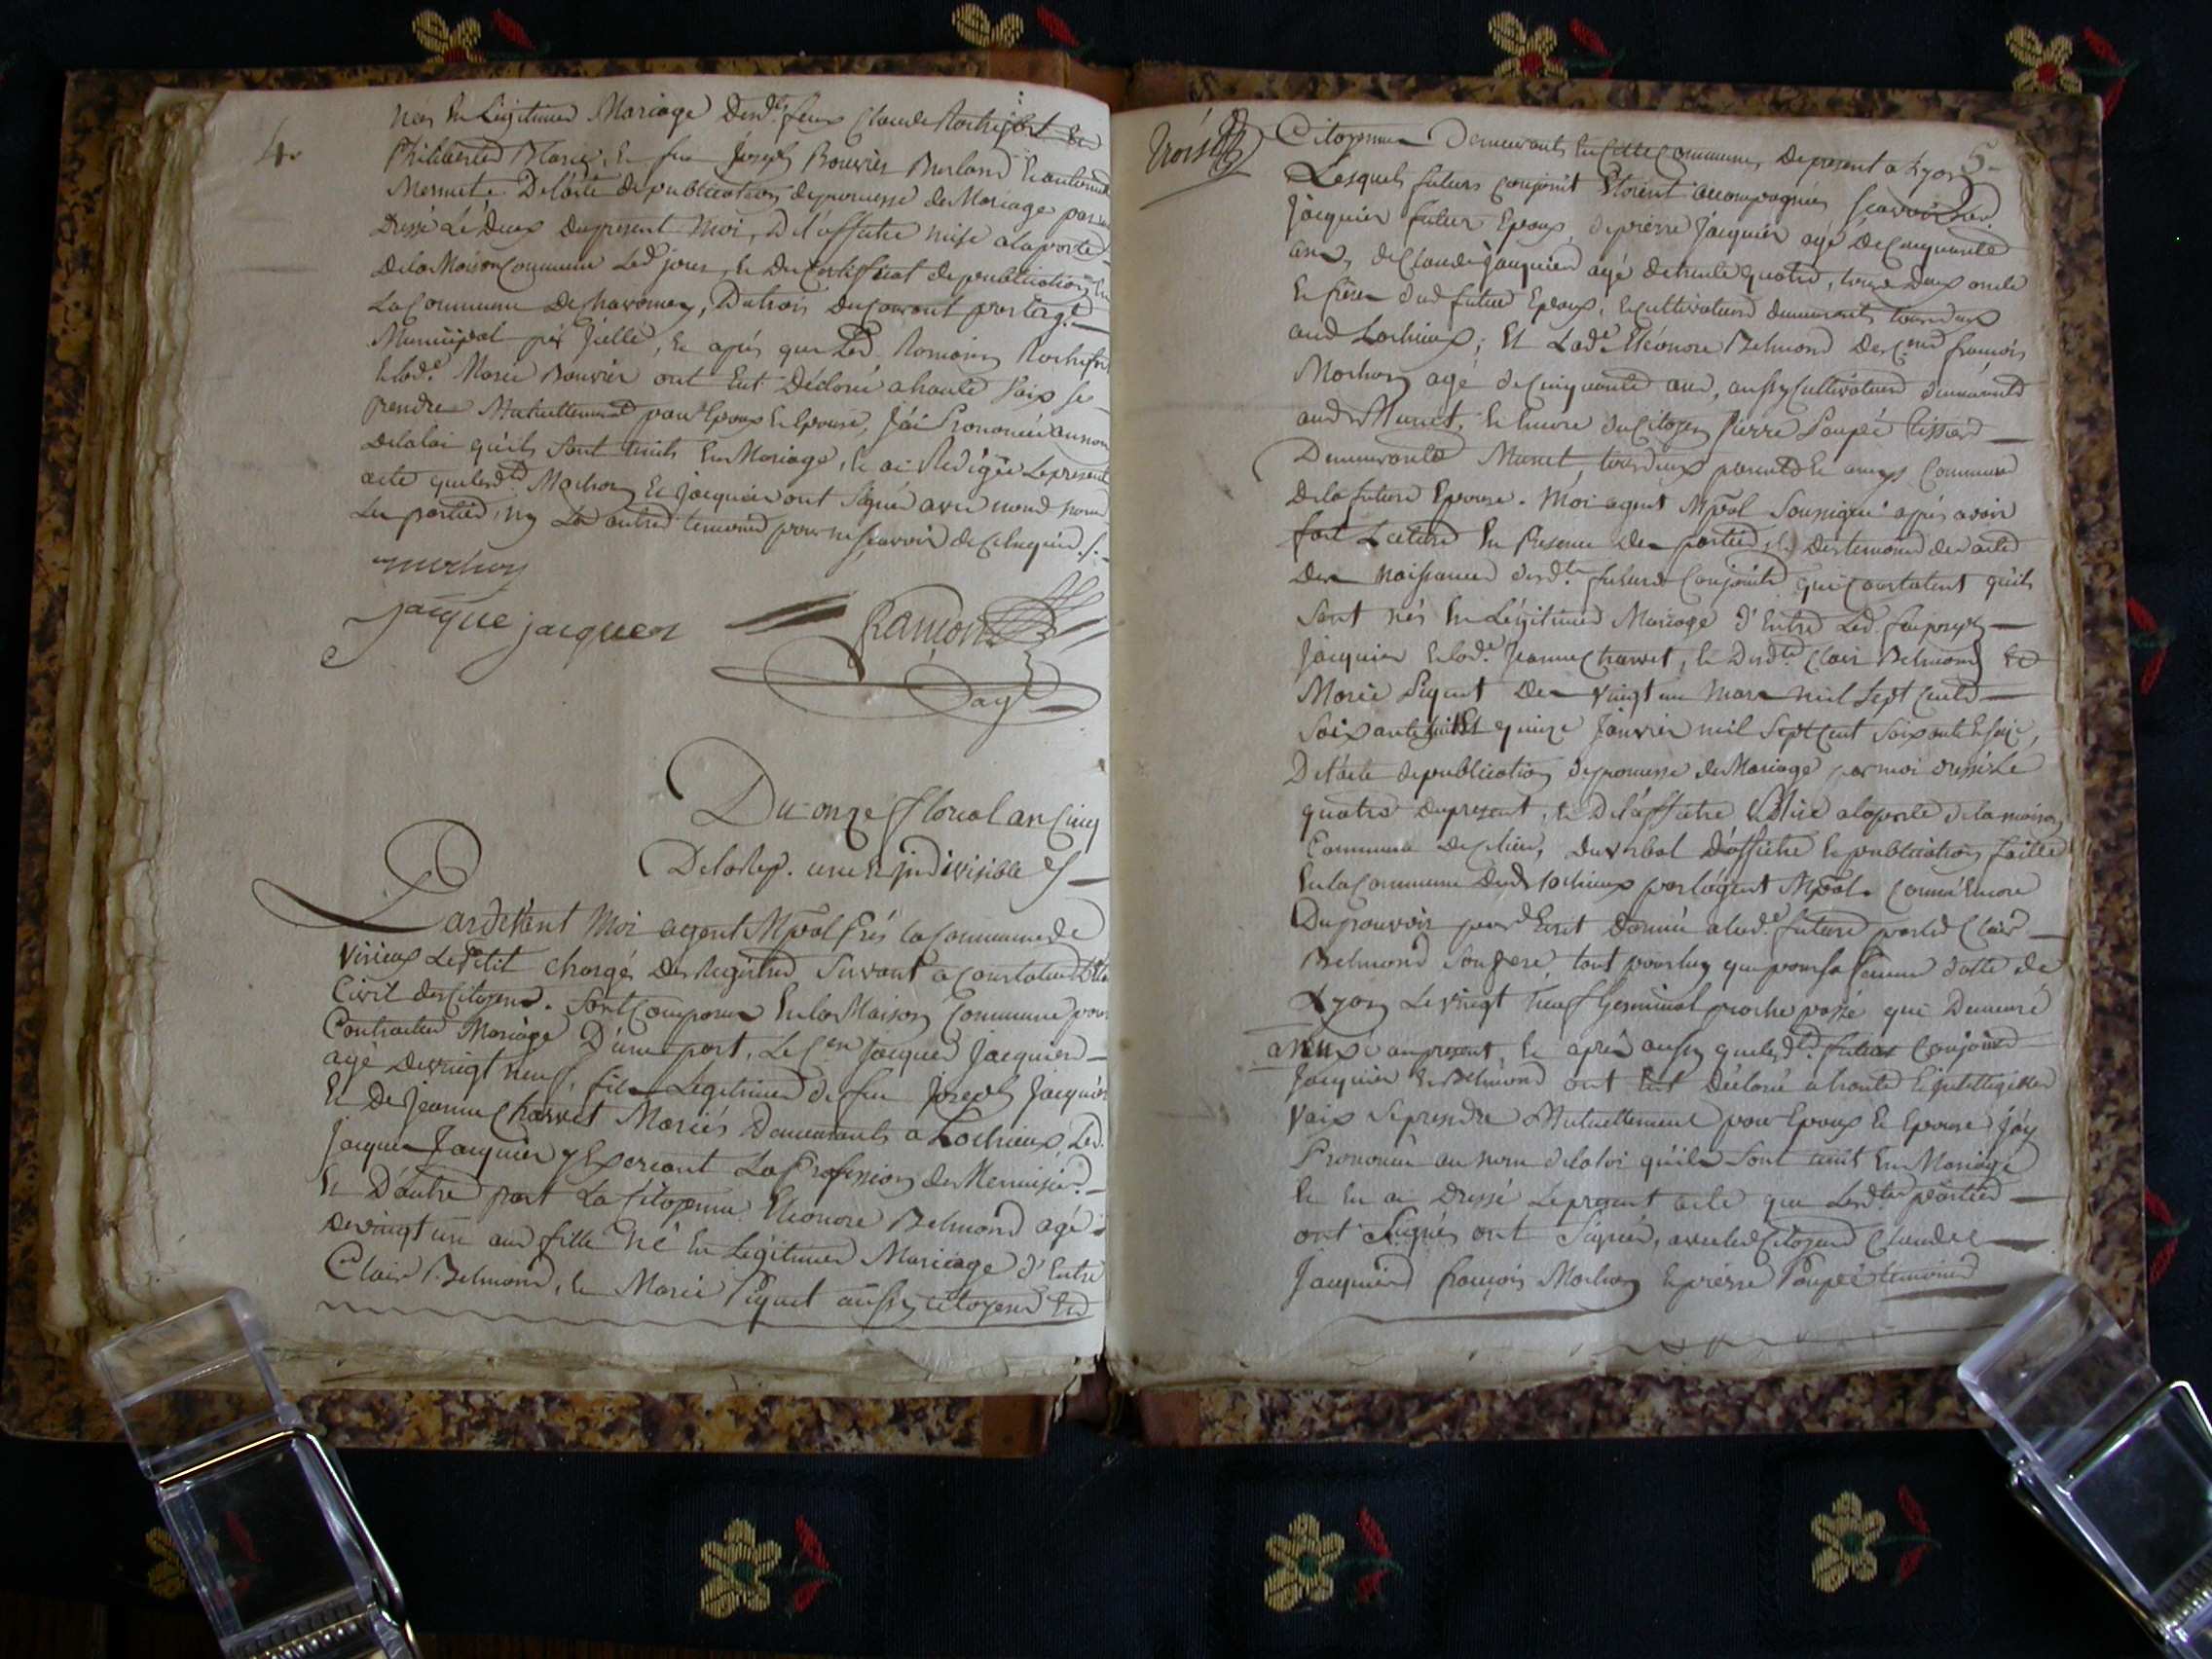 4.
nés En Légitime Mariage Desd.ts feux Claude Rochefort Et
Philiberte Marie, Et feu Joseph Bouvier Burland Et antoinette
Mermet. De l'acte de publication de promesse de Mariage par moi
Dressé Le Deux du present moi, De l'affiche mise a la porte
De la Maison Commune Led. jour, Et Du Certificat de publication En
La Commune De Chavornay, Du trois Du Courant par l'ag.t
Municipal Jullie, Et après que Led. Romain Rochefort
Et lad.e Marie Bouvier ont Eut Déclaré a haute Voix se
prendre Mutuellement pour Epoux Et Epouse, J'ai Prononcé au nom
De la loi qu'ils sont unis En Mariage, Et ai Redigée Le present
acte que lesd.ts Mochon Et Jacquier ont Signé avec
Les parties, ny Les autres temoins pour ne scavoir de ce Enquis ./.
mochon
Jacque jacquer françon
ag.t
Du onze floreal an Cinq
De la Rep. une Et indivisible
Pardevant Moi agent Mpal la Commune de
Virieux Le Petit chargés Des Registres Servant a Constater L'Etat
Civil des Citoyens. Sont Comparus En la Maison Commune pour
Contracter Mariage D'une part, Le C.en Jacques Jacquier
agé De vingt neuf, fils Legitime de feu Joseph Jacquier
Et De Jeanne Charvet Mariés Demeurants a Lochieux, Led.
Jacques Jacquier y Exercant La Profession de Menuisier
Et D'autre part La Citoyenne Eléonore Belmond agé
De vingt un ans fille Né En Legitime Mariage d'Entre
Clair Belmond, Et Marie Piquet aussy citoyens Et
trois
5
Citoyenne Demeurants En Cette Commune, De present a Lyon
Lesquels futurs conjoint Etoient accompagnés, scavoir Led.
Jacquier futur Epoux, de pierre Jacquier agé De Cinquante
ans, de Claude Jacquier agé de trente quatre, tous Deux oncle
Et frère dud futur Epoux, Et Cultivateurs demeurants tous deux
aud Lochieux; Et Lad.e Eléonore Belmond De C.en françois
Mochon agé de Cinquante ans, aussy Cultivateur demeurant
aud Munet, Et Encore du Citoyen Pierre Poupé tissier
Demeurant Munet, tous deux parents Et amys Commun
De la future Epouse. Moi agent Mpal Soussigné après avoir
fait Lecture En Presence des parties, et Des temoins des acte
De naissance desd.ts futurs Conjoints qui Constatent qu'ils
Sont nés En Légitime Mariage d'Entre Led. feu joseph
Jacquier Et lad.e Jeanne Charvet, Et Desd.ts Clair Belmond Et
Marie Piquet Des vingt un Mars mil Sept Cent
Soixante huit Et quinze Janvier mil Sept Cent Soixante Et seize,
De l'acte de publication de promesse de Mariage par moi dressé Le
quatre du present, Et De l'affiche Mise a la porte de la maison
Commune de Ce lieu, Du verbal D'affiche Et publication faitte
En la Commune Dud Lochieux par l'agent Mpal. Comme Encore
Du pouvoir par Ecrit Donnée a lad.e future par led Clair
Belmond Son pere, tant pour luy que pour sa femme datté de
Lyon Le vingt neuf Germinal proche passé qui Demeure
annexé au present, Et après aussy que lesd.ts futurs Conjoints
Jacquier Et Belmond ont Eut Déclaré a haute Et intelligible
Voix Se prendre Mutuellement pour Epoux Et Epouse j'ay
Prononcée au nom de la loi qu'ils Sont unit En Mariage
Et En ai Dressé Le present acte que Lesd.tes parties
ont Signés ont Signés, avec led Citoyens Claude
Jacquier françois Mochon Et pierre Poupé temoins